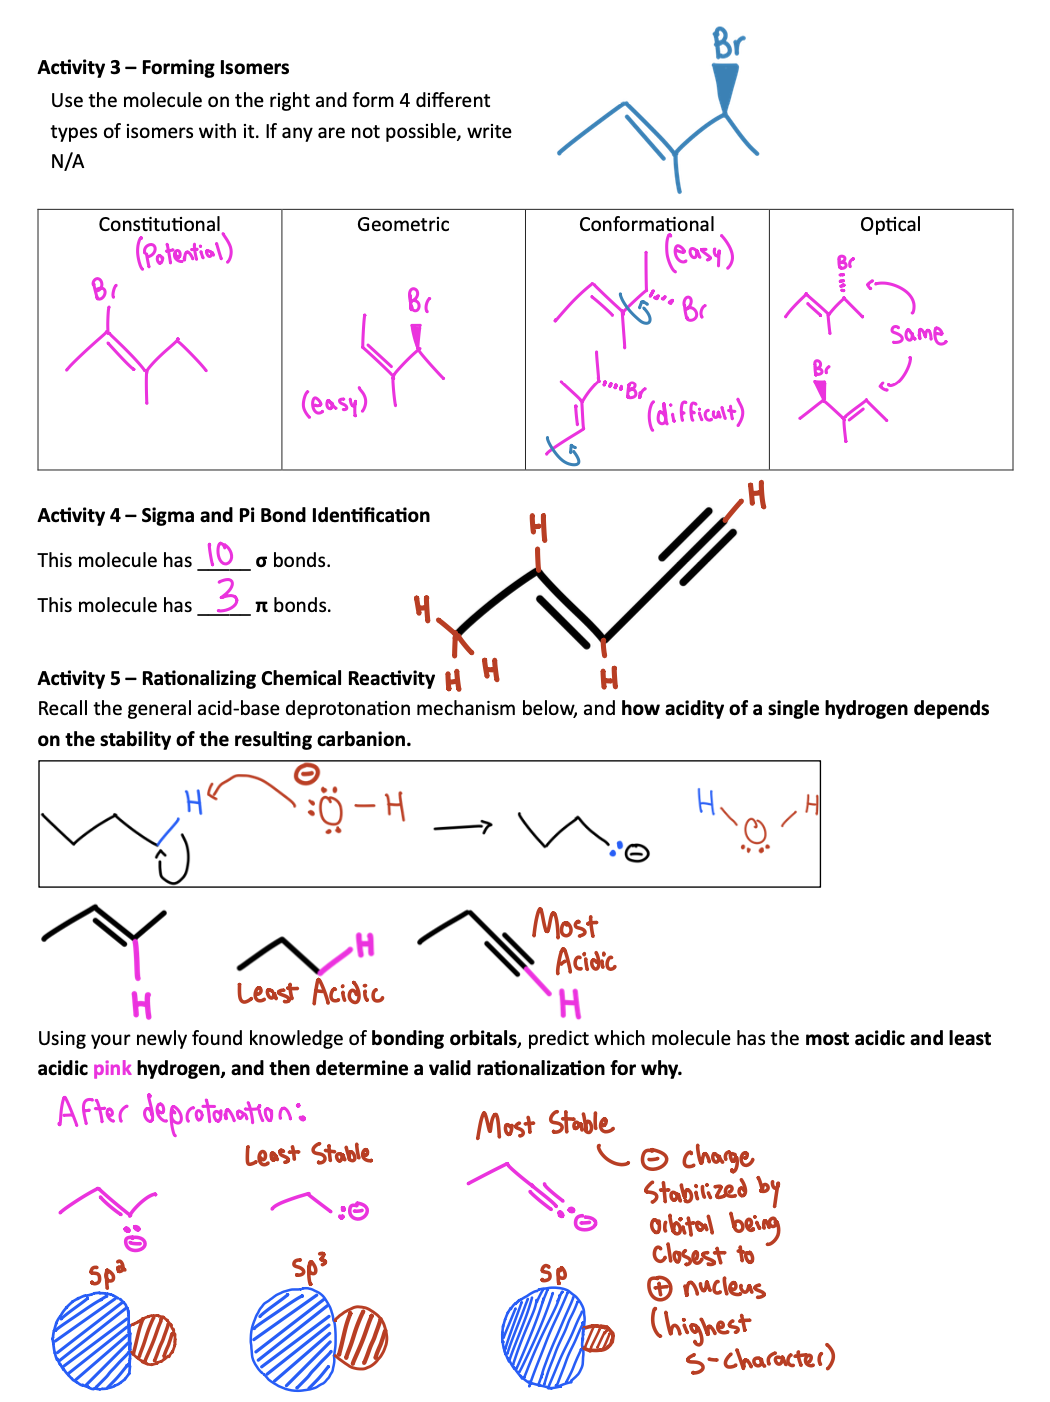 Br
Activity 3 – Forming Isomers
Use the molecule on the right and form 4 different
types of isomers with it. If any are not possible, write
N/A
Constitutional
(Potential)
Br
Geometric
Br
(easy)
Conformational
(easy)
Br
Br
(difficult)
Optical
Br
Same
Br
Activity 4 – Sigma and Pi Bond Identification
This molecule has 10 σ bonds.
This molecule has 3 π bonds.
H
H
H
H
H
H
Activity 5 – Rationalizing Chemical Reactivity
Recall the general acid-base deprotonation mechanism below, and how acidity of a single hydrogen depends
on the stability of the resulting carbanion.
H
⊖
:Ö – H
⊖
H
O
H
H
H
Least Acidic
Most
Acidic
H
Using your newly found knowledge of bonding orbitals, predict which molecule has the most acidic and least
acidic pink hydrogen, and then determine a valid rationalization for why.
After deprotonation:
⊖
sp²
Least Stable
:⊖
sp³
Most Stable
⊖
sp
⊖ charge
Stabilized by
orbital being
closest to
⊕ nucleus
(highest
s-character)